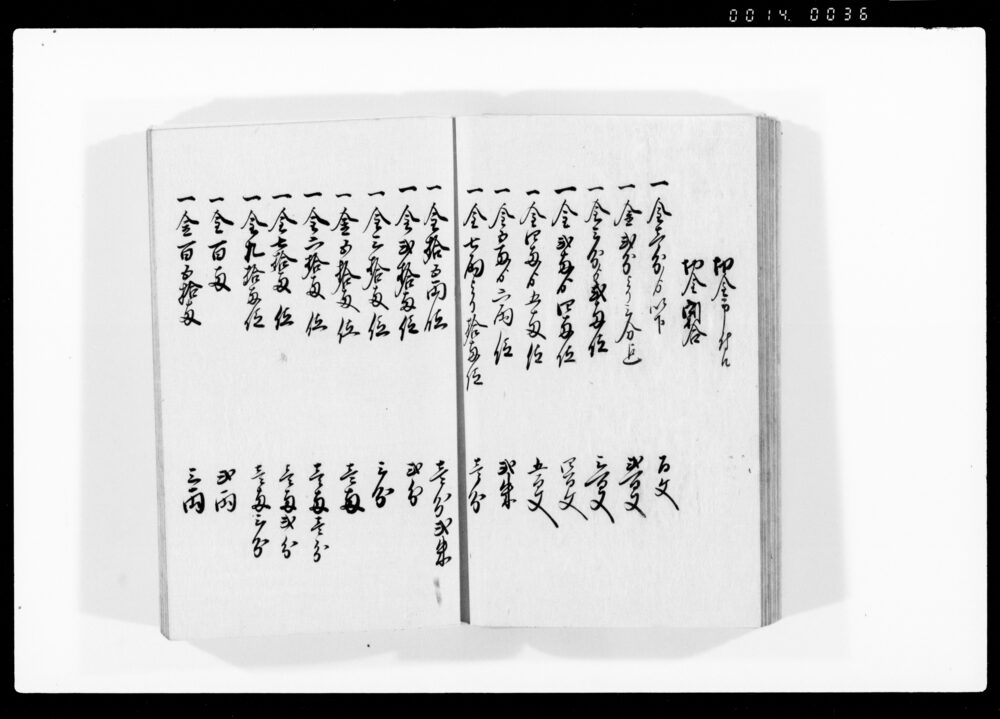 0014. 0036
割合
一金壱分ゟ以下　百文
一金弐分ゟ三分迄　弐百文
一金三分ゟ弐両位　三百文
一金弐両ゟ四両位　四百文
一金四両ゟ五両位　五百文
一金五両ゟ六両位　弐朱
一金七両ゟ拾両位　壱分
一金拾五両位　壱分弐朱
一金弐拾両位　弐分
一金三拾両位　三分
一金五拾両位　壱両
一金六拾両位　壱両壱分
一金七拾両位　壱両弐分
一金九拾両位　壱両三分
一金百両　弐両
一金百五拾両　三両